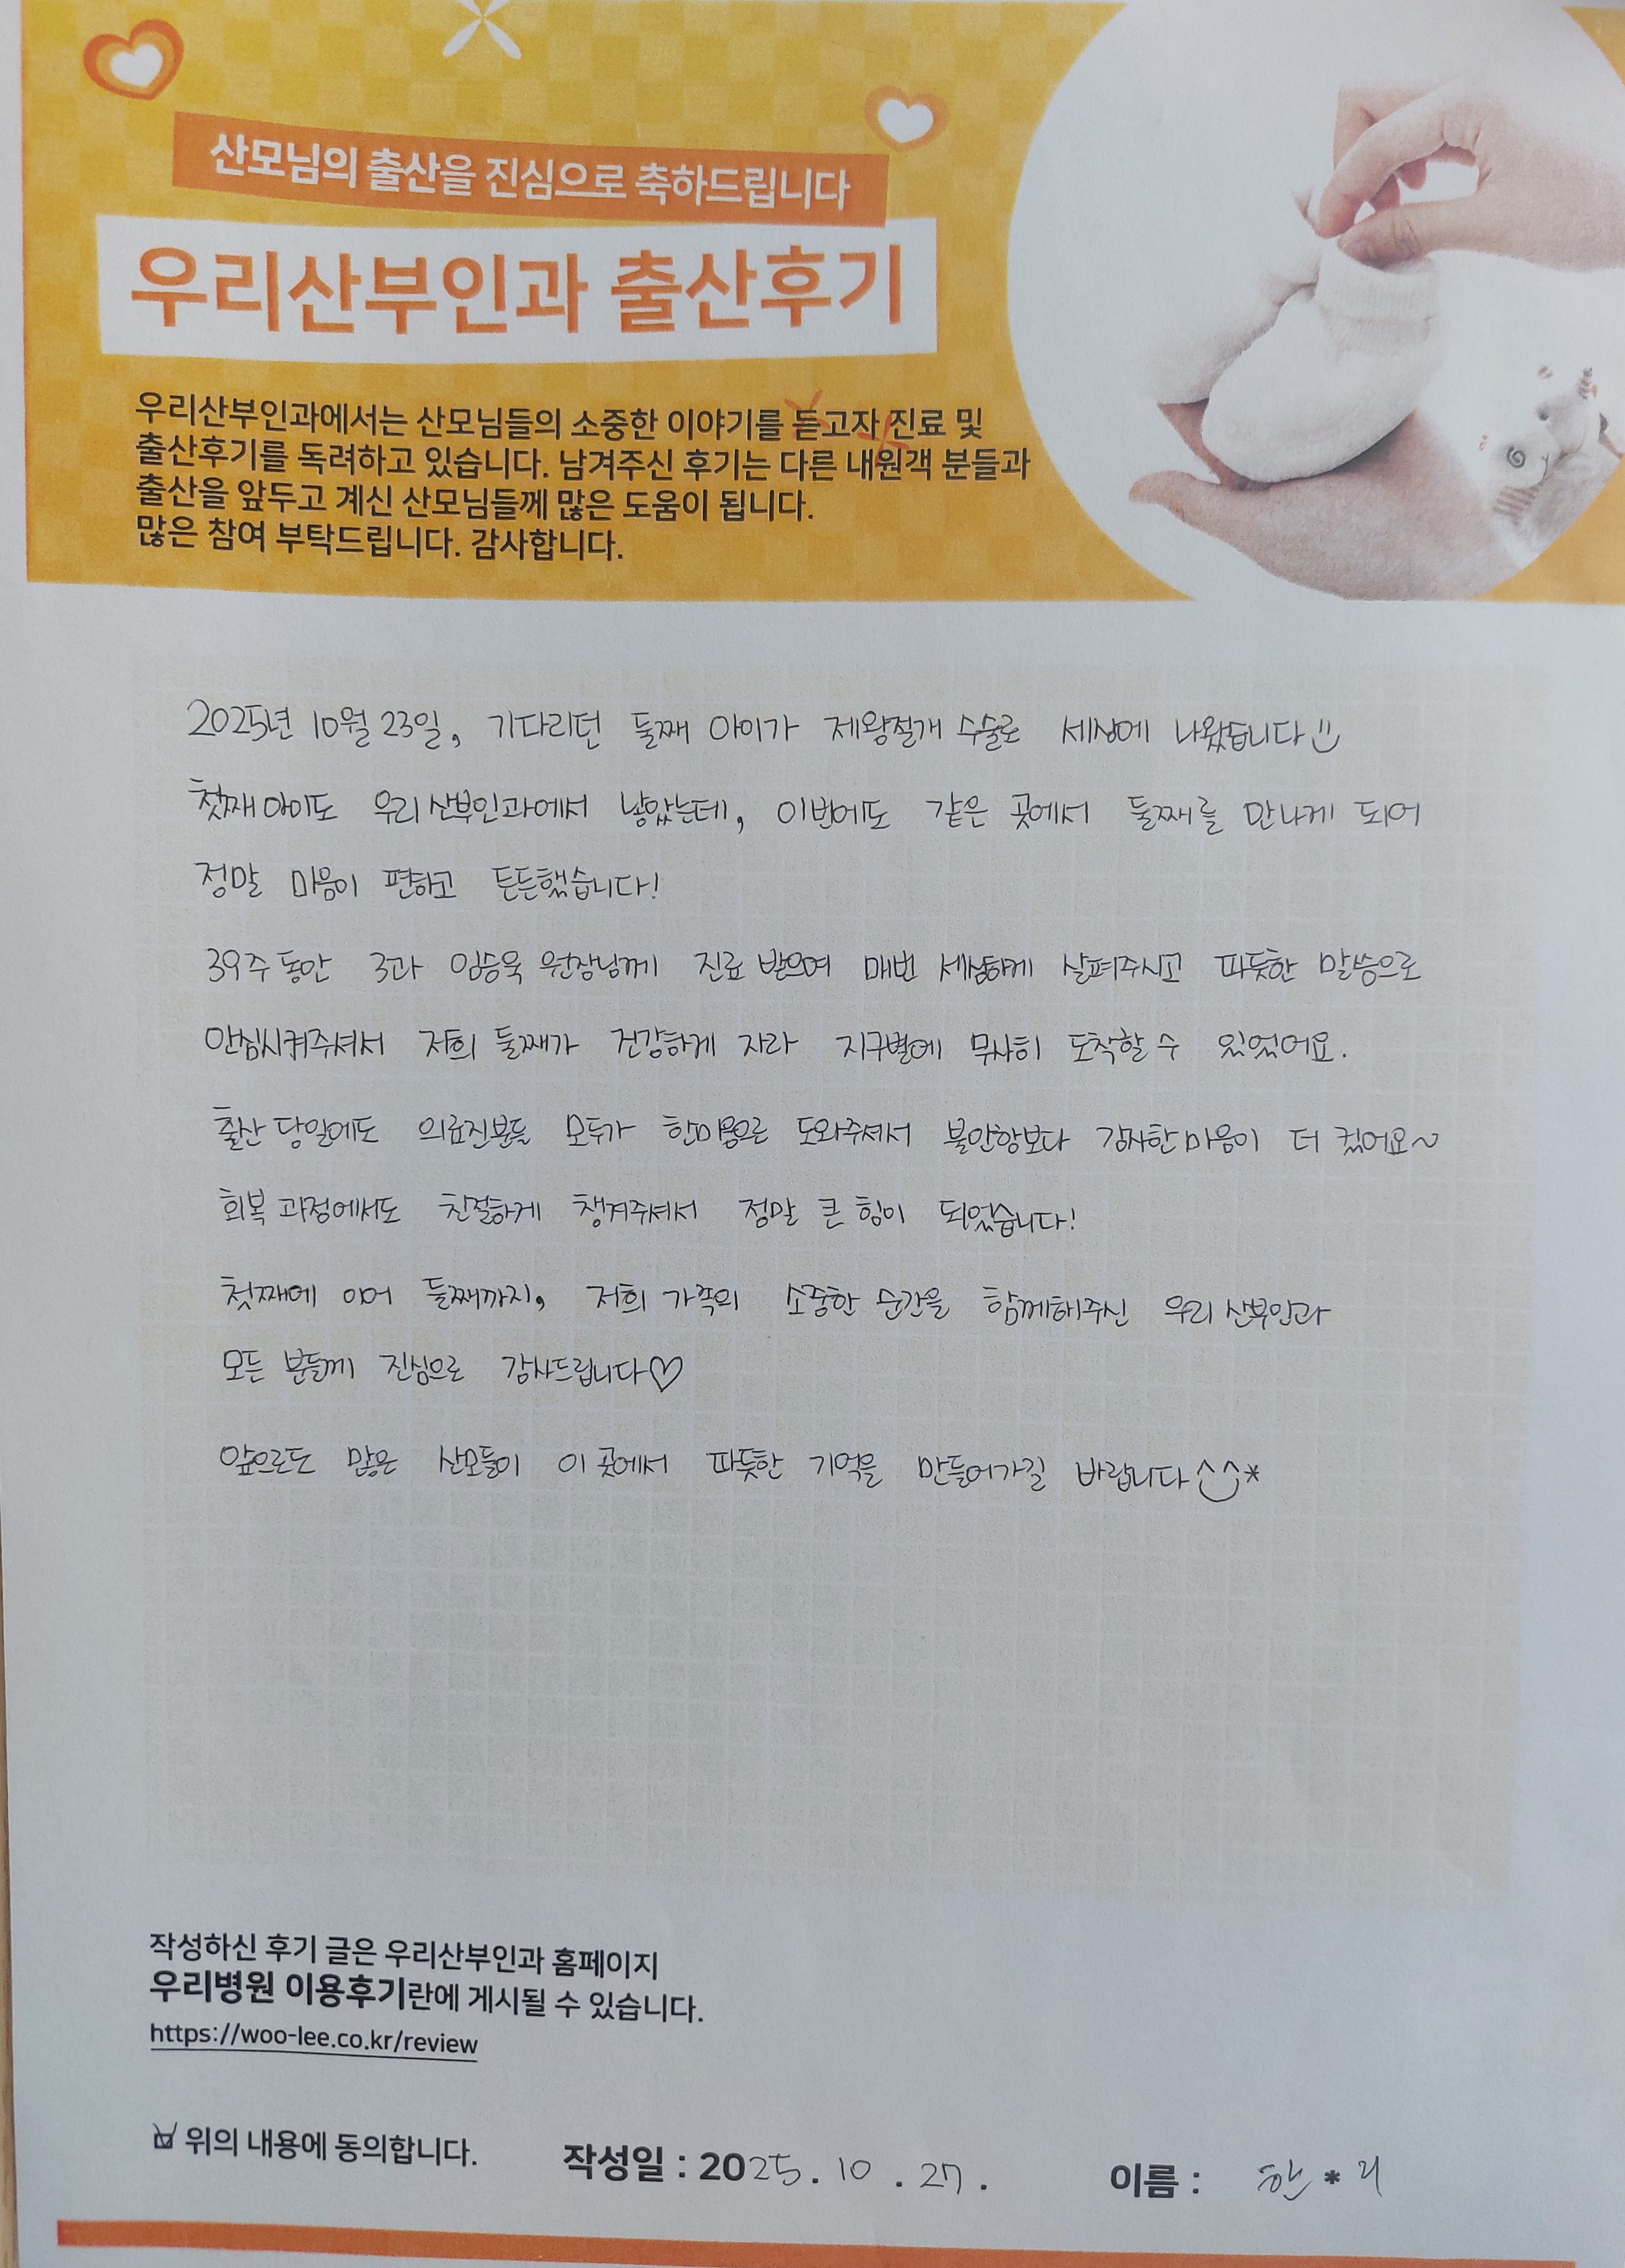 산모님의 출산을 진심으로 축하드립니다
우리산부인과 출산후기
우리산부인과에서는 산모님들의 소중한 이야기를 듣고자 진료 및
출산후기를 독려하고 있습니다. 남겨주신 후기는 다른 내원객 분들과
출산을 앞두고 계신 산모님들께 많은 도움이 됩니다.
많은 참여 부탁드립니다. 감사합니다.
2025년 10월 23일, 기다리던 둘째 아이가 제왕절개 수술로 세상에 나왔습니다
첫째 아이도 우리 산부인과에서 낳았는데, 이번에도 같은 곳에서 둘째를 만나게 되어
정말 마음이 편하고 든든했습니다!
39주 동안 3과 임승욱 원장님께 진료 받으며 매번 세심하게 살펴주시고 따뜻한 말씀으로
안심시켜주셔서 저희 둘째가 건강하게 자라 지구별에 무사히 도착할 수 있었어요.
출산 당일에도 의료진분들 모두가 한마음으로 도와주셔서 불안함보다 감사한 마음이 더 컸어요~
회복 과정에서도 친절하게 챙겨주셔서 정말 큰 힘이 되었습니다!
첫째에 이어 둘째까지, 저희 가족의 소중한 순간을 함께해주신 우리 산부인과
모든 분들께 진심으로 감사드립니다♡
앞으로도 많은 산모들이 이 곳에서 따뜻한 기억을 만들어가길 바랍니다^^*
작성하신 후기 글은 우리산부인과 홈페이지
우리병원 이용후기란에 게시될 수 있습니다.
https://woo-lee.co.kr/review
위의 내용에 동의합니다. 작성일 : 2025. 10 . 27 . 이름 : 한 * 리